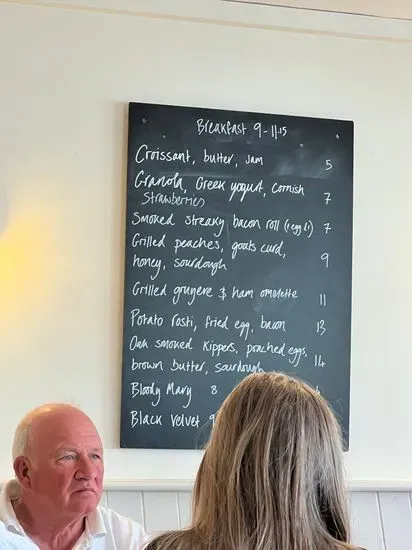 Breakfast 9-11.15
Croissant, butter, jam 5
Granola, Greek yogurt, Cornish
Strawberries 7
Smoked streaky bacon roll (+egg 1) 7
Grilled peaches, goats curd,
honey, sourdough 9
Grilled gruyere & ham omelette 11
Potato rosti, fried egg, bacon 13
Oak smoked kippers, poached eggs,
brown butter, sourdough 14
Bloody Mary 8
Black Velvet 9